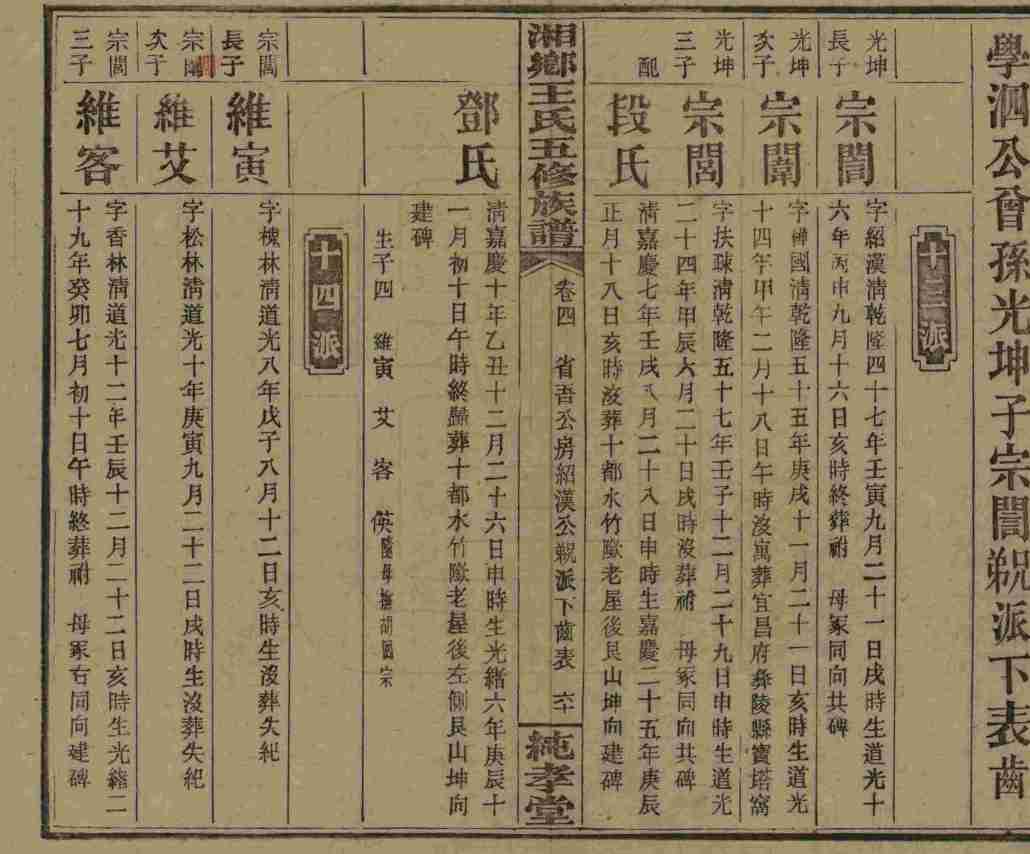 學泗公曾孫光坤子宗誾㧞派下表齒
十三派
光坤
長子
宗誾
字紹漢淸乾隆四十七年壬寅九月二十一日戌時生道光十
六年丙申九月十六日亥時終葬祔 母冢同向共碑
光坤
次子
宗闈
字 國淸乾隆五十五年庚戌十一月二十一日亥時生道光
十四年甲午二月十八日午時沒寓葬宜昌府彝陵縣寶塔窩
光坤
三子
宗閭
字扶 淸乾隆五十七年壬子十二月二十九日申時生道光
二十四年甲辰六月二十日戌時沒葬祔 母冢同向共碑
配
段氏
淸嘉慶七年壬戌八月二十八日申時生嘉慶二十五年庚辰
正月十八日亥時沒葬十都水竹㘰老屋後艮山坤向建碑
湘鄉王氏五修族譜
卷四 省吾公房紹漢公 派下齒表 六十
純孝堂
鄧氏
淸嘉慶十年乙丑十二月二十六日申時生光緒六年庚辰十
一月初十日午時終歸葬十都水竹㘰老屋後左側艮山坤向
建碑
生子四 維寅 艾 客 僙隨母撫胡 宗
十四派
宗誾
長子
維寅
字槐林淸道光八年戊子八月十二日亥時生沒葬失紀
宗誾
次子
維艾
字松林淸道光十年庚寅九月二十二日戌時生沒葬失紀
宗誾
三子
維客
字香林淸道光十二年壬辰十二月二十二日亥時生光緒二
十九年癸卯七月初十日午時終葬祔 母冢右同向建碑